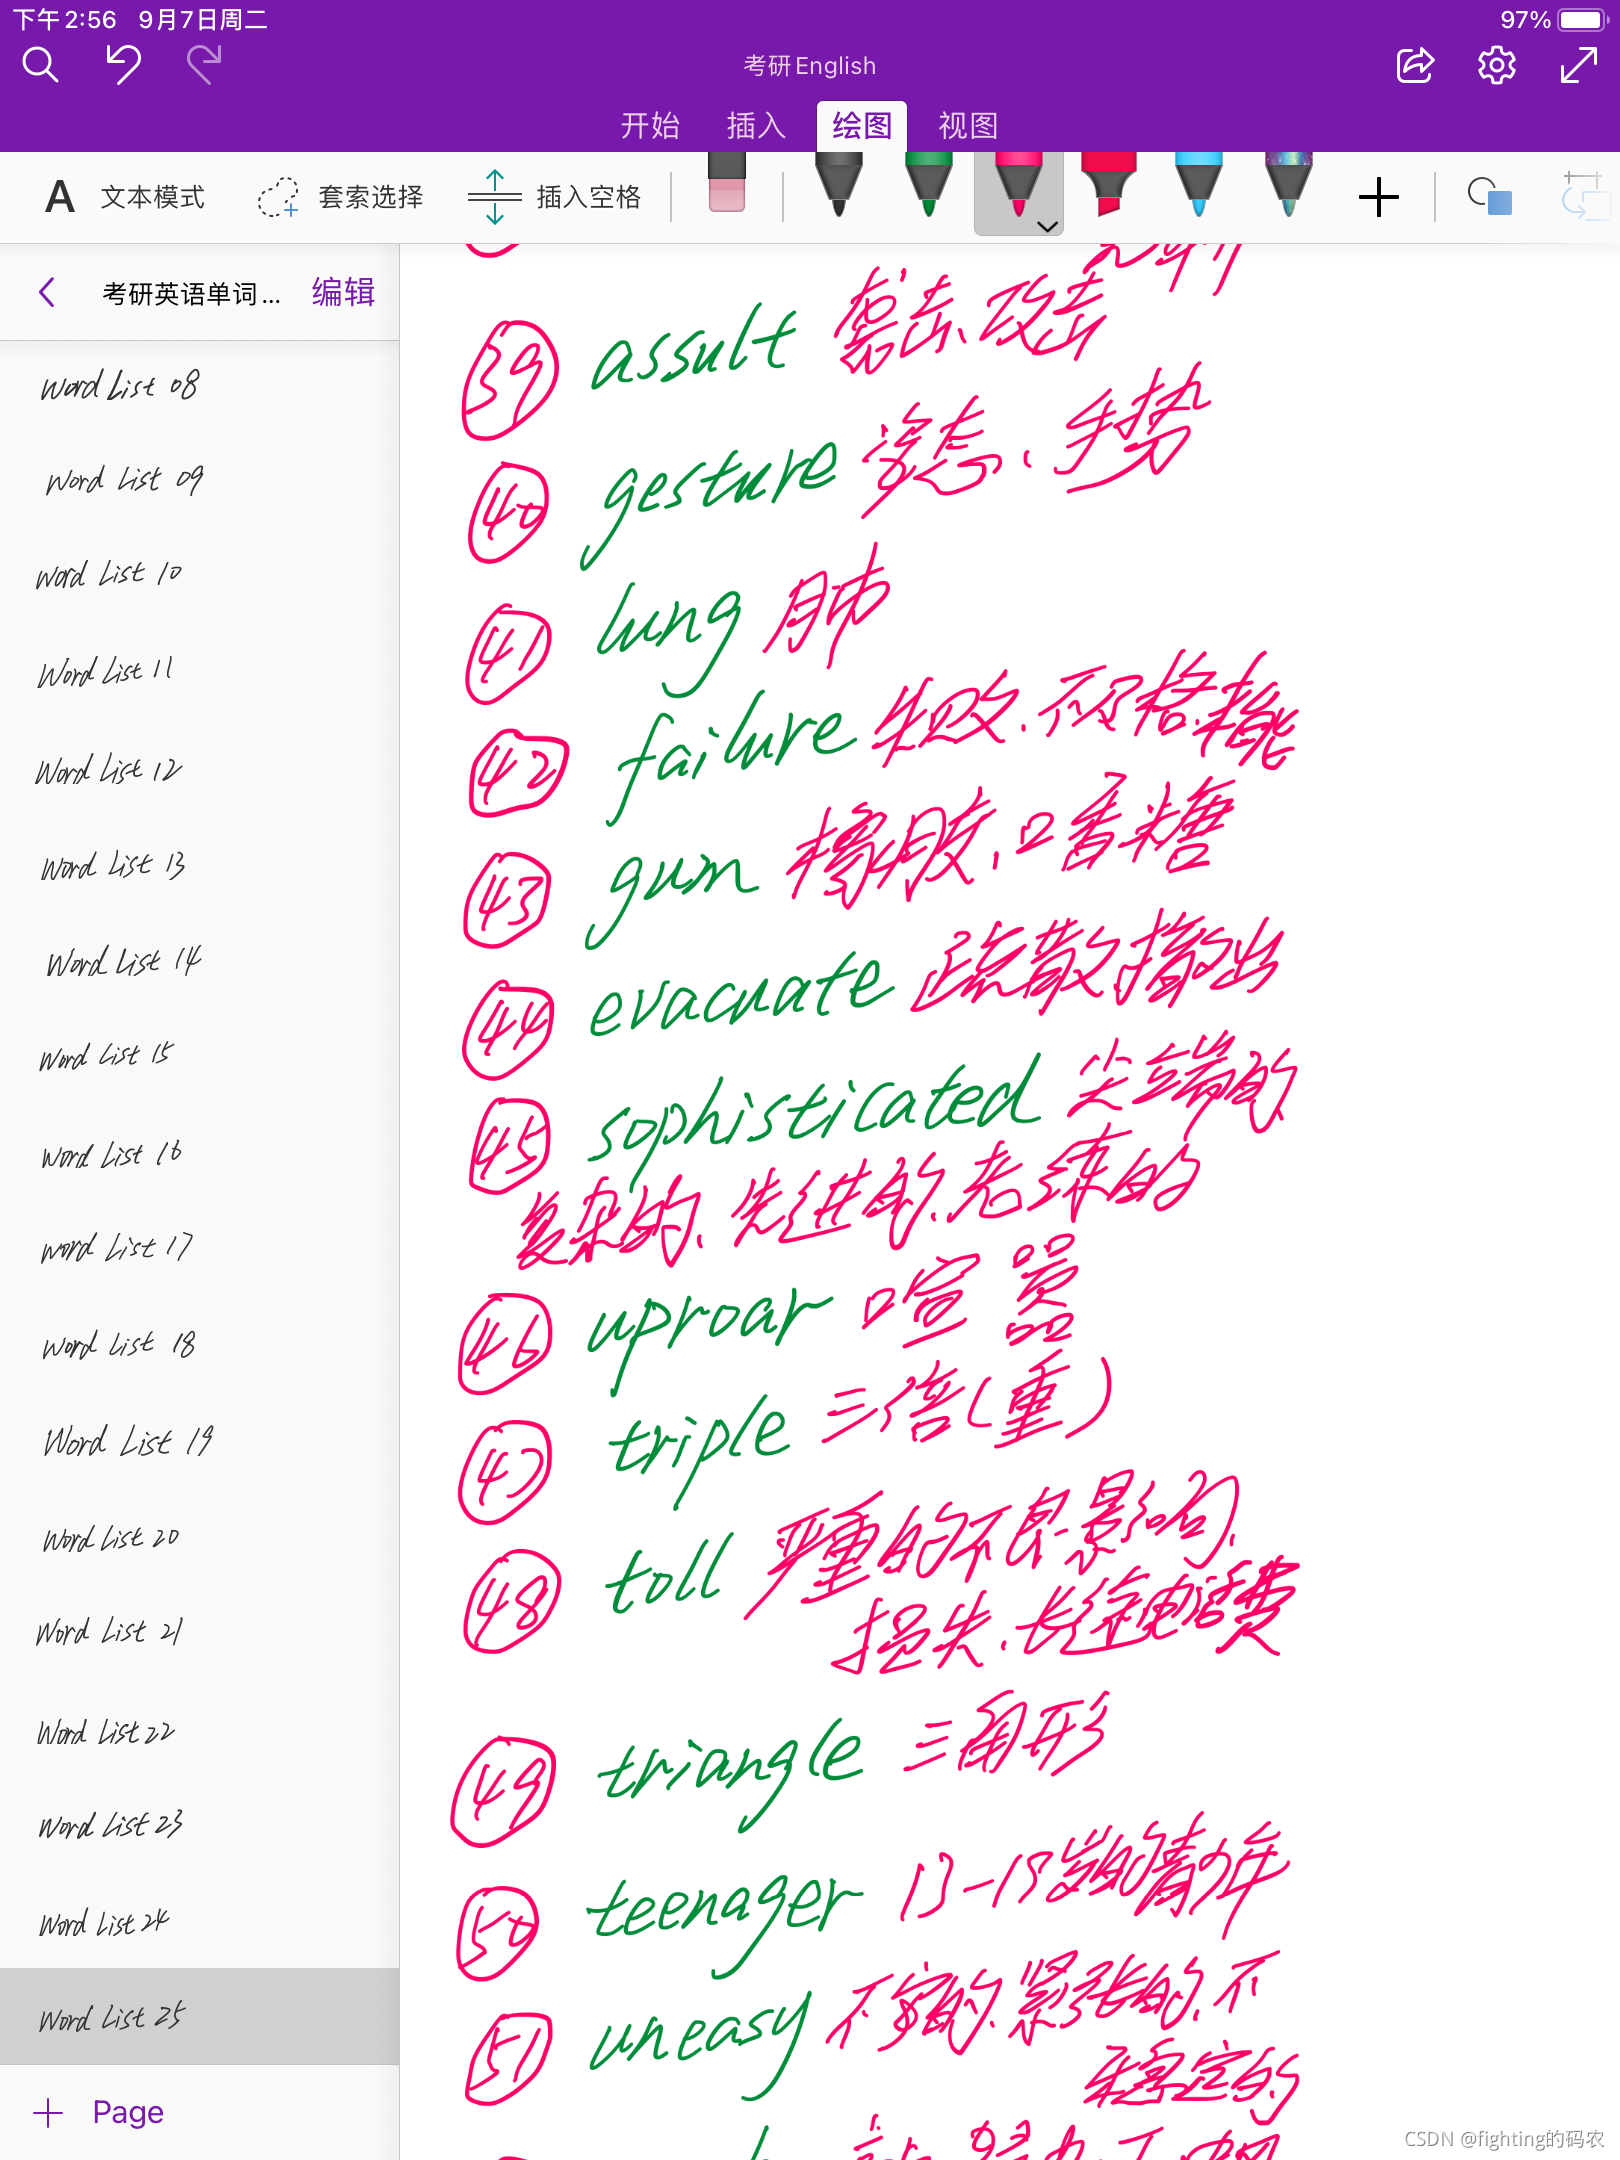 下午2:56 9月7日周二
97%
考研English
开始 插入 绘图 视图
A 文本模式 套索选择 插入空格
考研英语单词... 编辑
Word List 08
Word List 09
Word List 10
Word List 11
Word List 12
Word List 13
Word List 14
Word List 15
Word List 16
Word List 17
Word List 18
Word List 19
Word List 20
Word List 21
Word List 22
Word List 23
Word List 24
Word List 25
Page
39 assult 袭击、攻击
40 gesture 姿态、手势
41 lung 肺
42 failure 失败、不及格
43 gum 橡胶、口香糖
44 evacuate 疏散、撤出
45 sophisticated 尖端的
复杂的、先进的、老练的
46 uproar 喧嚣
47 triple 三倍(重)
48 toll 严重的不良影响、
损失、长途电话费
49 triangle 三角形
50 teenager 13-15岁的青少年
51 uneasy 不安的、紧张的、不
稳定的
CSDN @fighting的码农